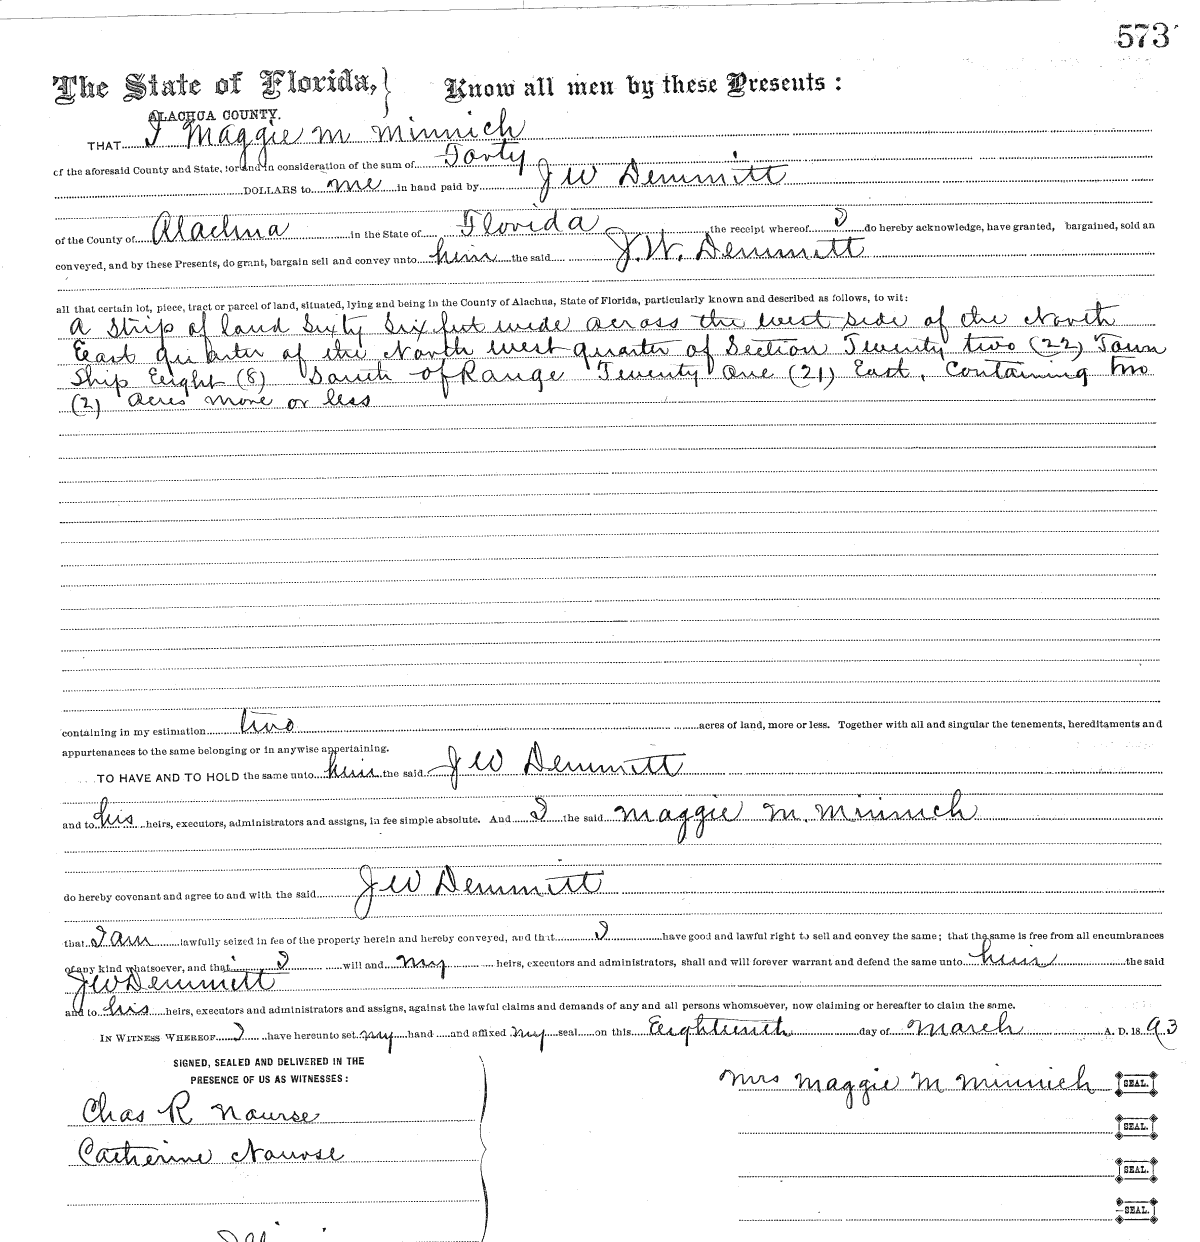 573
The State of Florida, } Know all men by these Presents :
ALACHUA COUNTY.
THAT I Maggie M Minnich
of the aforesaid County and State, for and in consideration of the sum of Forty
DOLLARS to me in hand paid by J W Demmitt
of the County of Alachua in the State of Florida the receipt whereof I do hereby acknowledge, have granted, bargained, sold an
conveyed, and by these Presents, do grant, bargain sell and convey unto him the said J. W. Demmitt
all that certain lot, piece, tract or parcel of land, situated, lying and being in the County of Alachua, State of Florida, particularly known and described as follows, to wit:
A Strip of land Sixty Six feet wide across the west side of the North
East quarter of the North west quarter of Section Twenty two (22) Town
Ship Eight (8) South of Range Twenty One (21) East, Containing two
(2) acres more or less
containing in my estimation two acres of land, more or less. Together with all and singular the tenements, hereditaments and
appurtenances to the same belonging or in anywise appertaining.
TO HAVE AND TO HOLD the same unto him the said J W Demmitt
and to his heirs, executors, administrators and assigns, in fee simple absolute. And I the said Maggie M. Minnich
do hereby covenant and agree to and with the said J W Demmitt
that I am lawfully seized in fee of the property herein and hereby conveyed, and that I have good and lawful right to sell and convey the same; that the same is free from all encumbrances
of any kind whatsoever, and that I will and my heirs, executors and administrators, shall and will forever warrant and defend the same unto him the said
J W Demmitt
and to his heirs, executors and administrators and assigns, against the lawful claims and demands of any and all persons whomsoever, now claiming or hereafter to claim the same.
IN WITNESS WHEREOF I have hereunto set my hand and affixed my seal on this Eighteenth day of March A. D. 18 93
SIGNED, SEALED AND DELIVERED IN THE
PRESENCE OF US AS WITNESSES :
Mrs Maggie M Minnich SEAL.
Chas R Nourse
SEAL.
Catherine Nourse
SEAL.
SEAL.